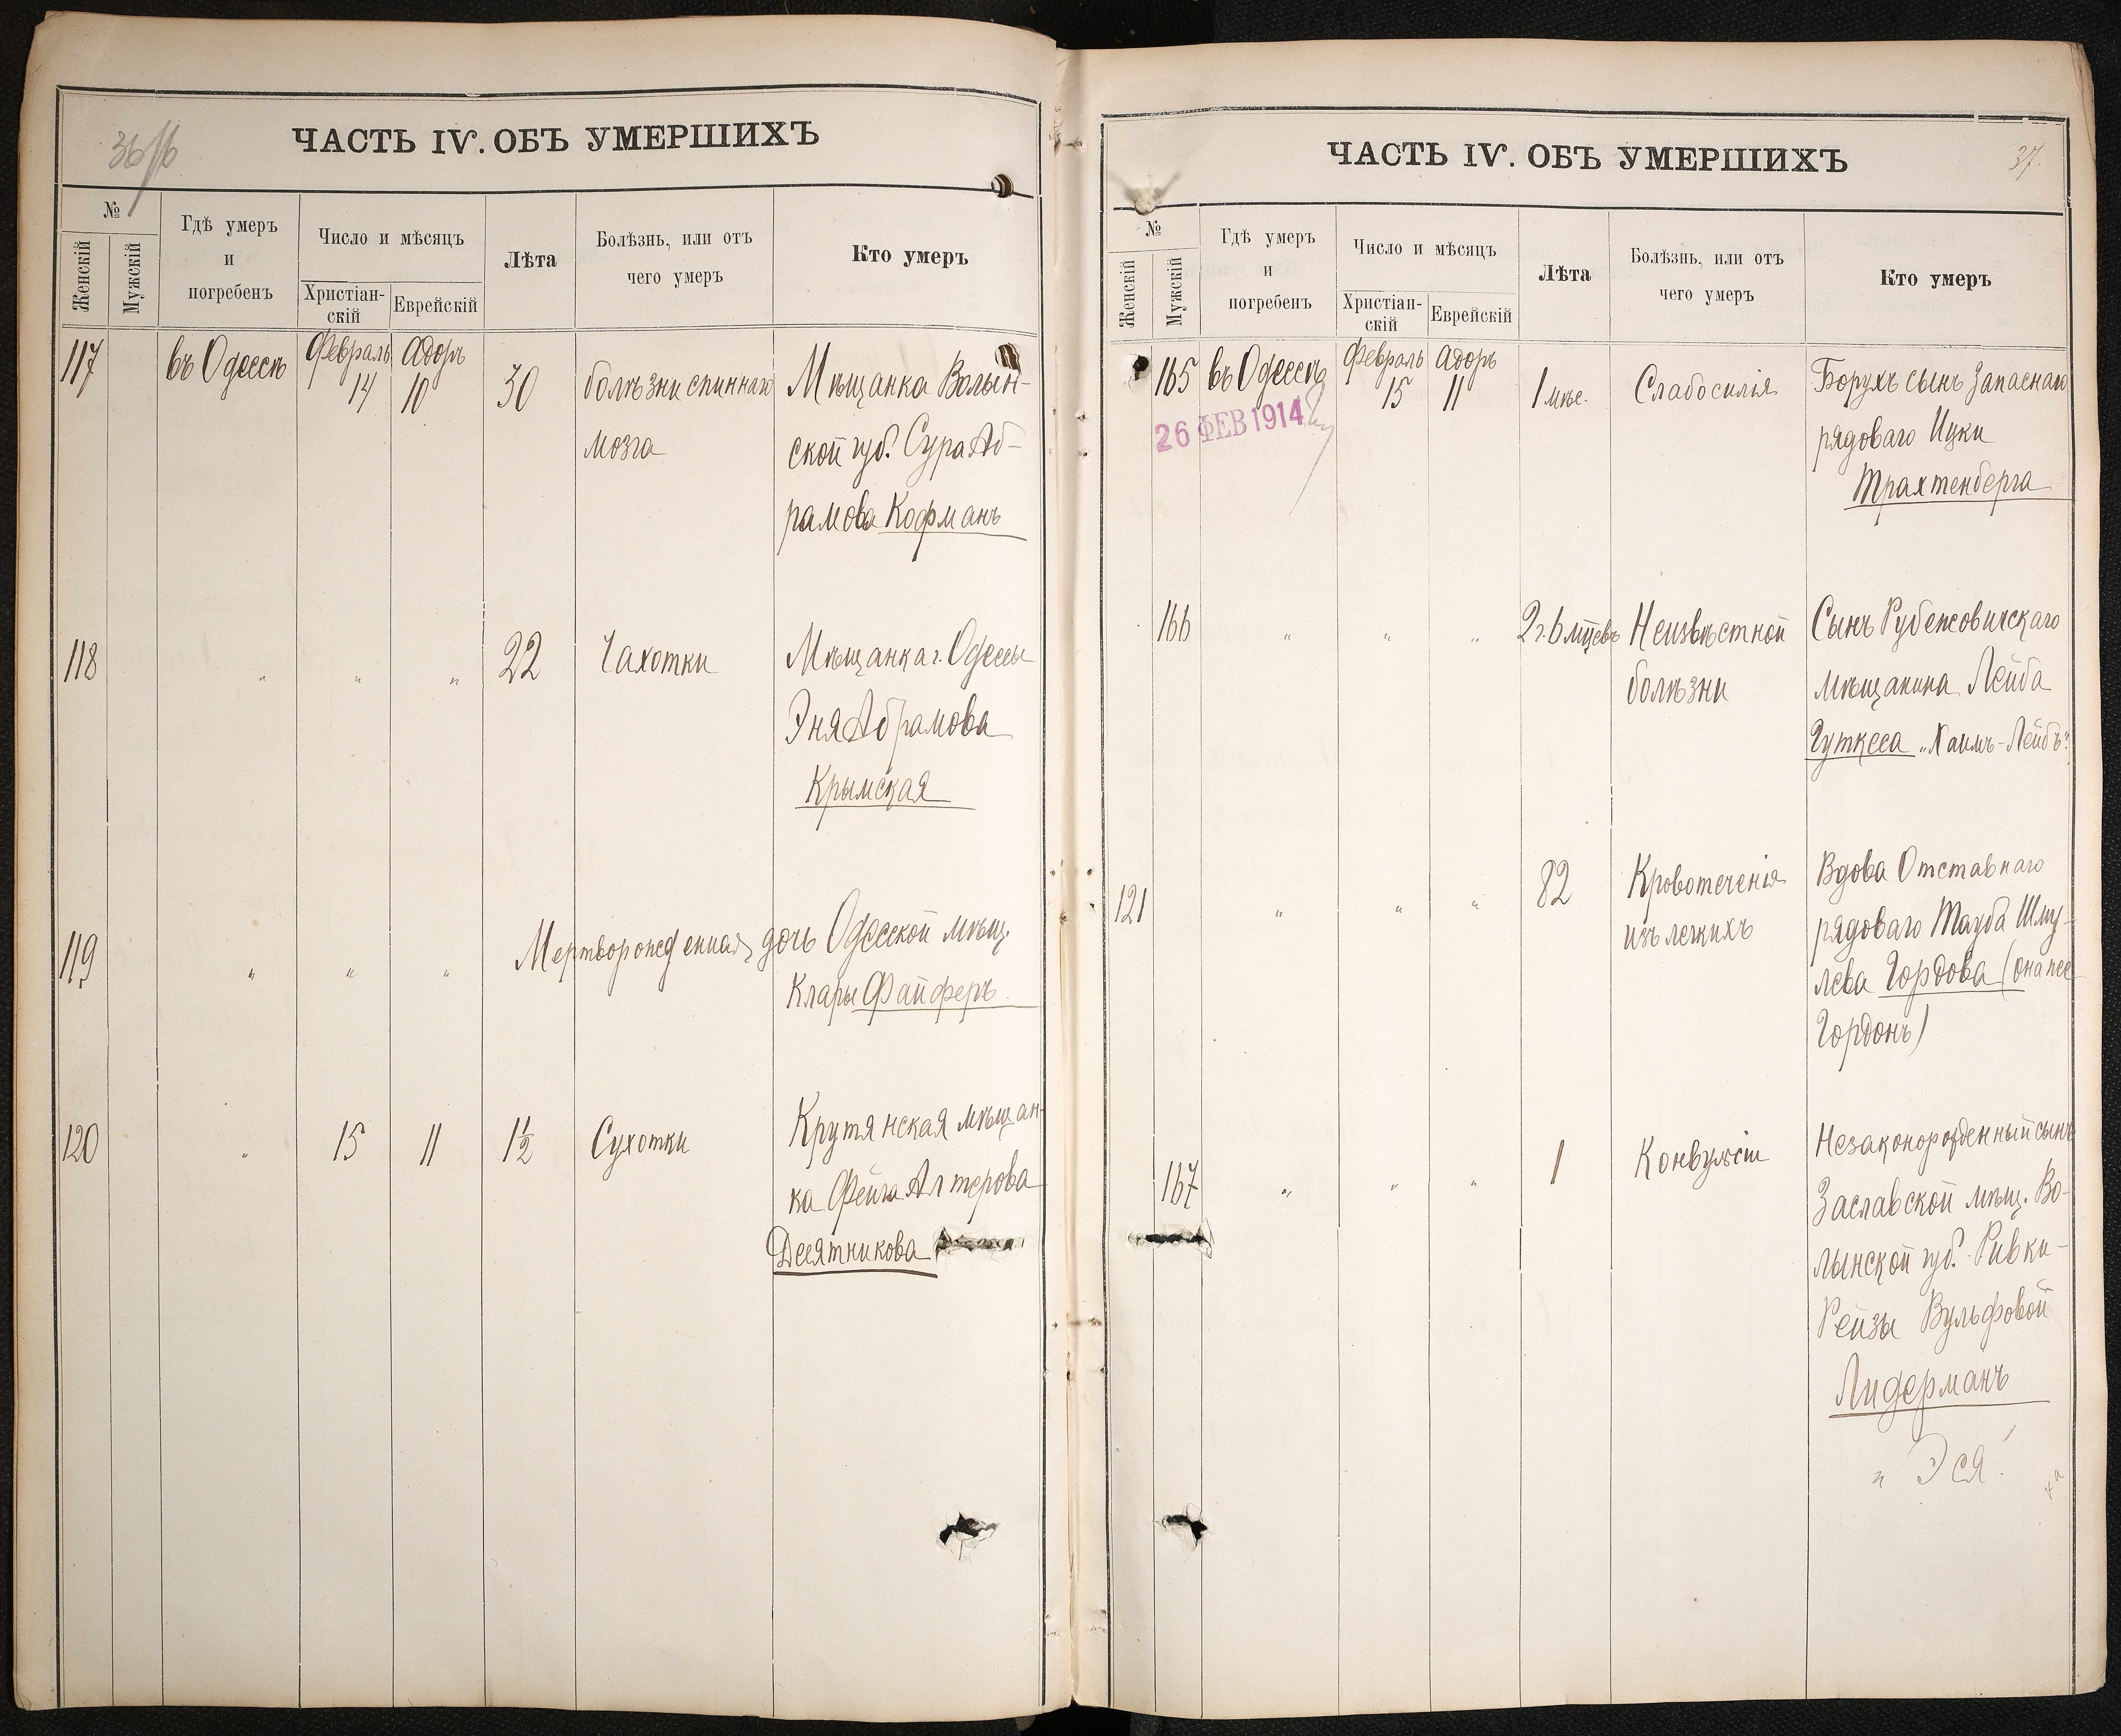 36/b
ЧАСТЬ IV. ОБЪ УМЕРШИХЪ
№
Женскій
Мужскій
Гдѣ умеръ
и
погребенъ
Число и мѣсяцъ
Христіан-
скій
Еврейскій
Лѣта
Болѣзнь, или отъ
чего умеръ
Кто умеръ
117 въ Одессѣ Февраль 14 Адоръ 10 30 болѣзни спиннаго
мозга
Мѣщанка Волын-
ской губ. Сура Аб-
рамова Кофманъ
118 „ „ „ 22 Чахотки
Мѣщанка г. Одессы
Эня Абрамова
Крымская
119 „ „ „ Мертворожденная дочь Одесской мѣщ.
Клары Файферъ
120 „ 15 11 1½ Сухотки
Крутянская мѣщан-
ка Фейга Алтерова
Десятникова
ЧАСТЬ IV. ОБЪ УМЕРШИХЪ
37.
№
Женскій
Мужскій
Гдѣ умеръ
и
погребенъ
Число и мѣсяцъ
Христіан-
скій
Еврейскій
Лѣта
Болѣзнь, или отъ
чего умеръ
Кто умеръ
165 въ Одессѣ Февраль 15 Адоръ 11 1 мѣс. Слабосилія
26 ФЕВ 1914
Борухъ сынъ запаснаго
рядоваго Ицки
Трахтенберга
166 „ „ „ 2 г. 6 мцевъ Неизвѣстной
болѣзни
Сынъ Рубежовичскаго
мѣщанина Лейба
Гуткеса „Хаимъ-Лейбъ“
121 „ „ „ 82 Кровотеченія
изъ легкихъ
Вдова Отставнаго
рядоваго Тауба Шму-
лева Гордова (она же
Гордонъ)
167 „ „ „ 1 Конвульсіи
Незаконорожденный сынъ
Заславской мѣщ. Во-
лынской губ. Ривки-
Рейзы Вульфовой
Лидерманъ
„Эся“